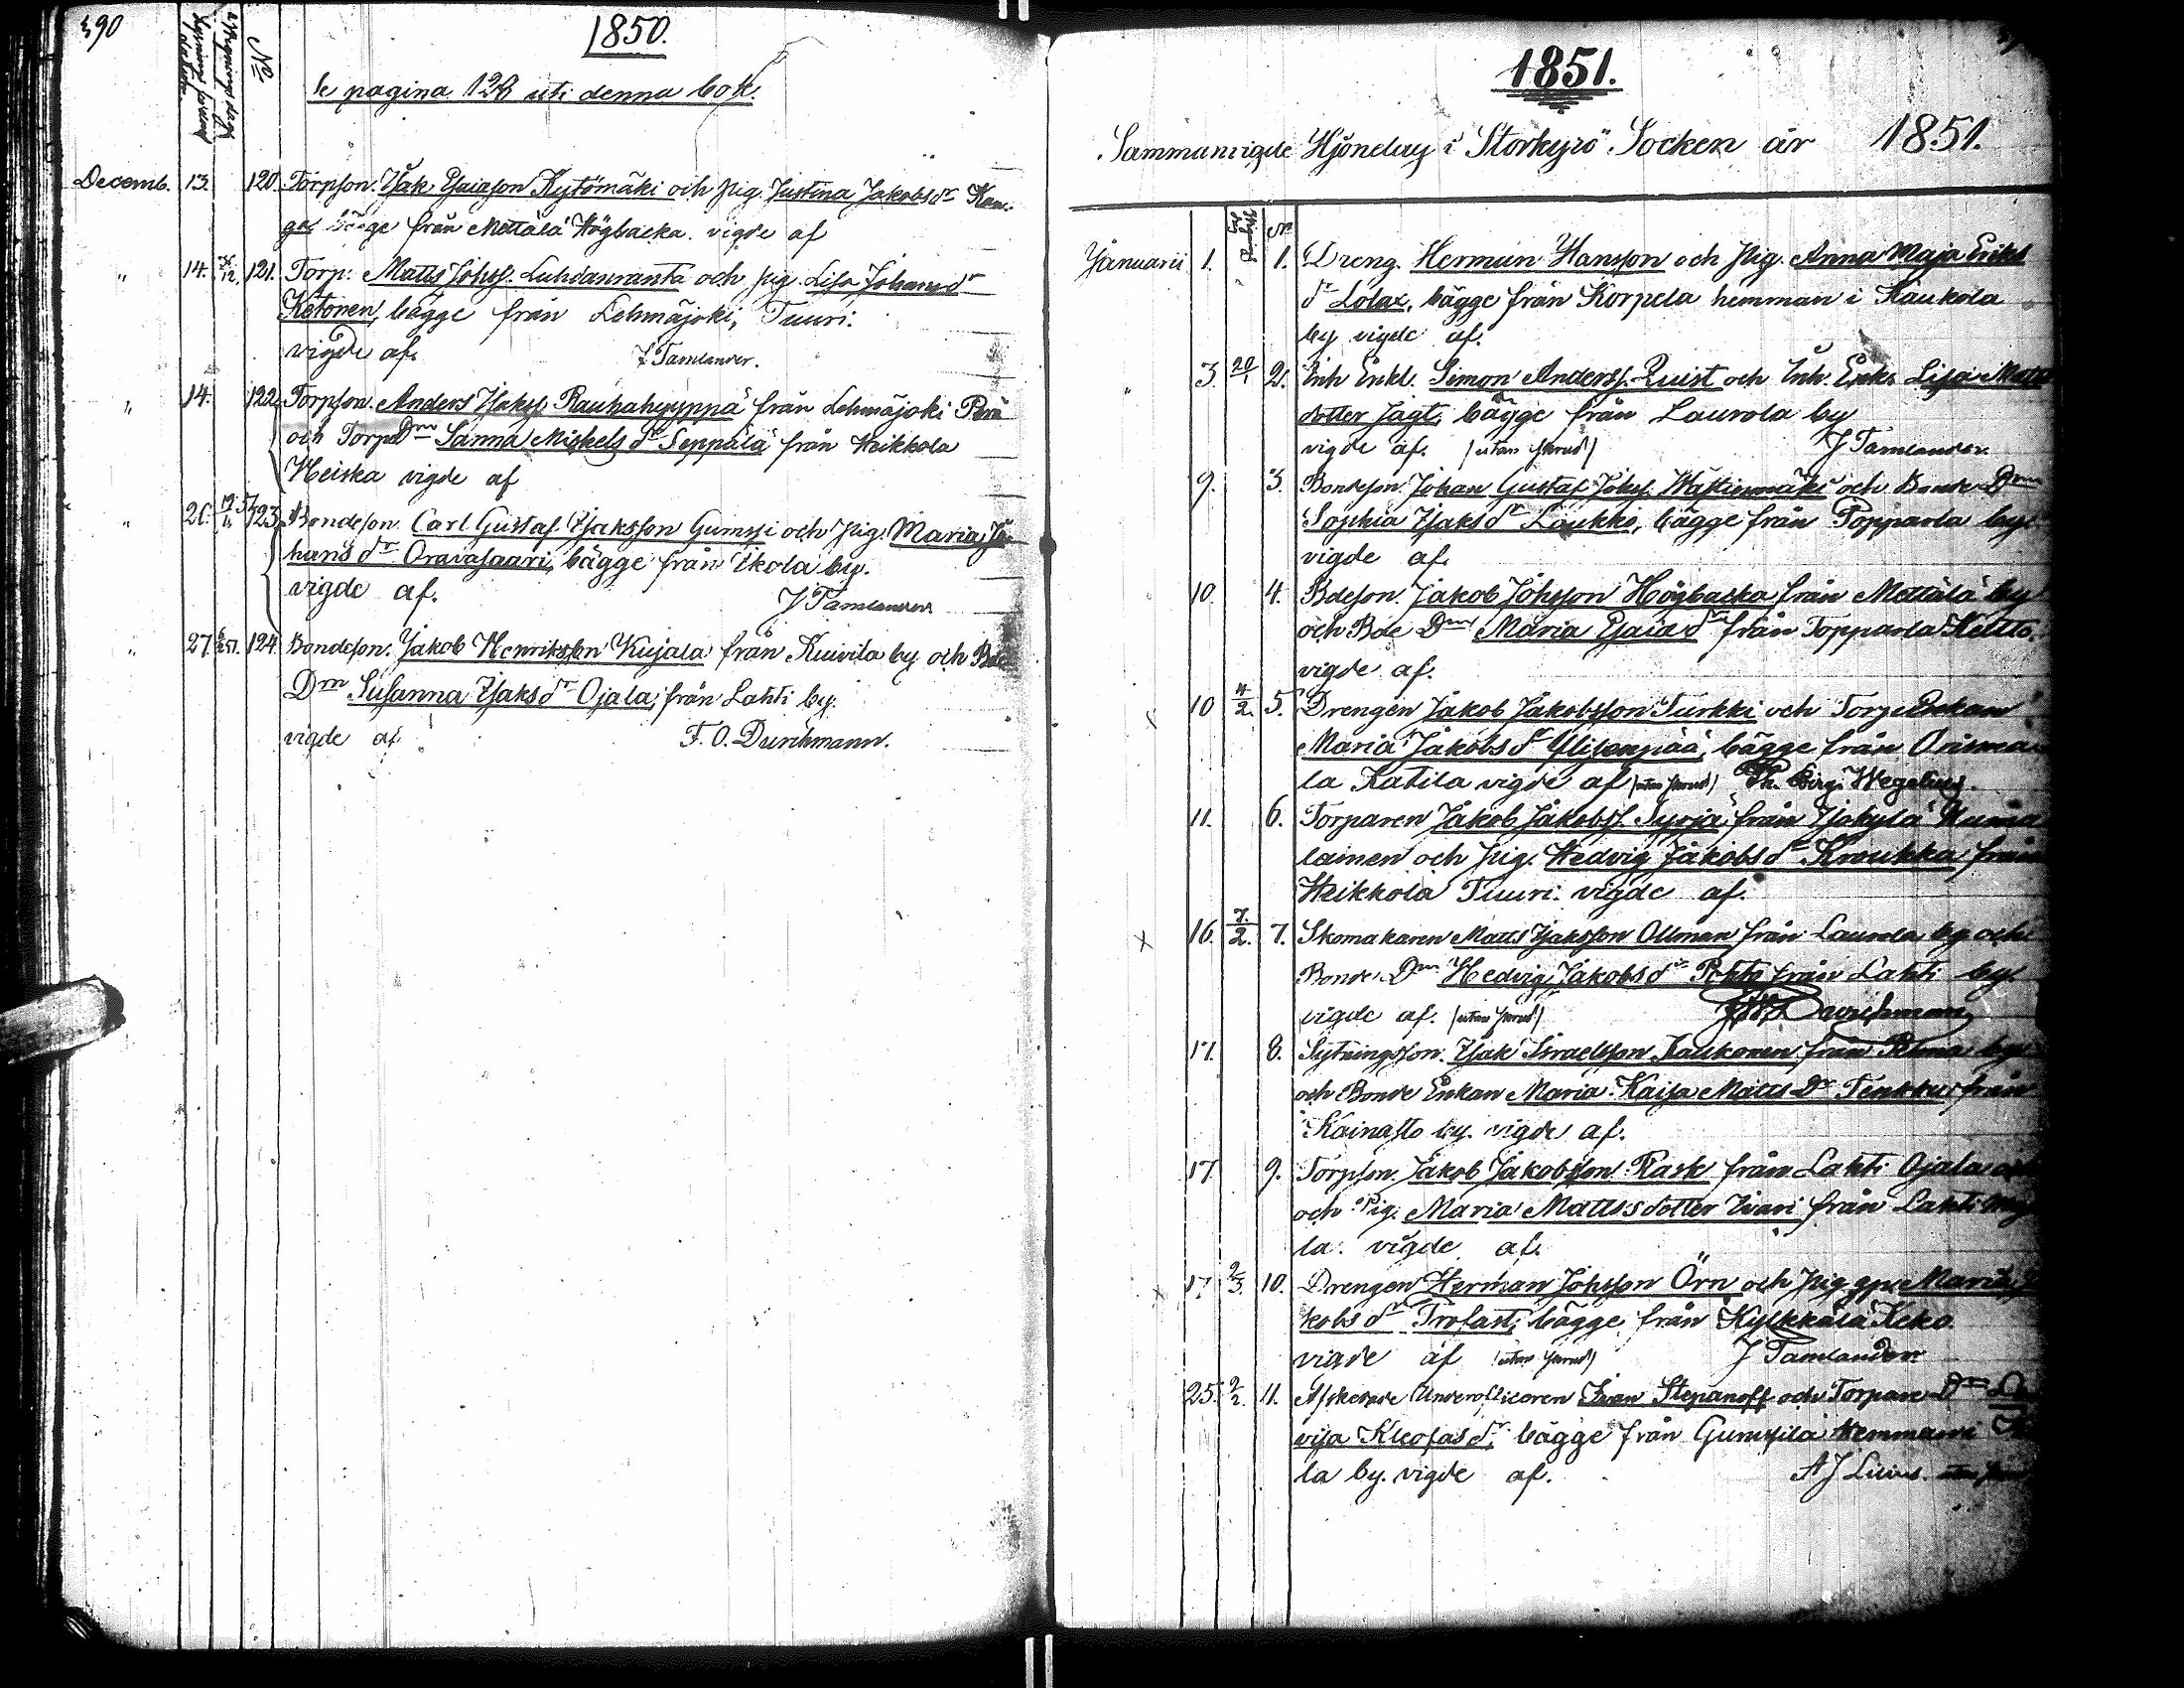 390
1850.
No
pagina 128 uti denna bok.
Decemb. 13. 120. Torpson. Isak Esaiason Kytömäki och pig. Justina Jakobs dr Kan-
gas bägge från Mettälä Högbacka. vigde af
" 14. 121. Torp. Matts Johss. Luhdanranta och pig. Lisa Johans dr
Ketonen, bägge från Lehmäjoki, Tuuri.
vigde af. J Tamlander.
" 14. 122. Torpson. Anders Isakss. Rauhahyyppä från Lehmäjoki Perä
och Torp Drn Sanna Mickels dr Seppälä från Heikkola
Heiska vigde af
" 26. 123. Bondeson. Carl Gustaf Isaksson Gumsi och pig. Maria Jo-
hans dr Oravasaari, bägge från Ikola by.
vigde af. J Tamlander
" 27. 124. Bondeson. Jakob Henriksson Kujala från Kuivila by och Bde
Drn Susanna Isaks dr Ojala, från Lahti by.
vigde af. F. O. Durchmann.
1851.
Sammanvigde Hjonelag i Storkyrö Socken år 1851.
No
Januarii 1. 1. Dreng. Herman Hansson och Pig. Anna Maja Eriks
dr Lolax, bägge från Korpela hemman i Kaukola
by vigde af.
" 3. 20/1 2. Inh Enkl. Simon Anderss. Quist och Inh. Enka Lisa Matts
dotter Jägt, bägge från Laurola by
vigde af. J Tamlander.
9. 3. Bondeson. Johan Gustaf Johss. Wästinmäki och Bonde Drn
Sophia Isaks dr Laukko, bägge från Topparla by
vigde af.
10. 4. Bdeson. Jakob Johsson Högbacka från Mettälä by
och Bde Drn Maria Esaia dr från Topparla Keltto.
vigde af.
10 4/2. 5. Drengen Jakob Jakobsson Turkki och Torp Enkan
Maria Jakobs dr Ylisenpää, bägge från Orisma-
la Katila vigde af Wegelius.
11. 6. Torparen Jakob Jakobss. Syrjä från Isokylä
lainen och pig. Hedvig Jakobs dr Kroukka från
Heikkola Tuuri. vigde af.
x 16. 7/2. 7. Skomakaren Matts Isaksson Ollman från Laurola by och
Bonde Drn Hedvig Jakobs dr Pohto från Lahti by.
vigde af. Durchmann
17. 8. Sytningsson. Isak Israelsson Kaukonen från by
och Bonde Enkan Maria Kaisa Matts Dr Tenkku från
Kainasto by. vigde af.
17 9. Torpson. Jakob Jakobsson Rask från Lahti Ojala
och Pig. Maria Mattsdotter Iivari från Lahti
la. vigde af.
x 17 2/3. 10. Drengen Herman Johsson Örn och Pig Maria Ja
kobs dr Trofast, bägge från Kylkkälä Keko
vigde af J Tamlander
25. 2/2. 11. Afskedade Underofficeren Iwan Stepanoff och Torpare Drn Lo
visa Kleofas dr, bägge från Gumsila Hemman i
la by. vigde af. A J Lilius.